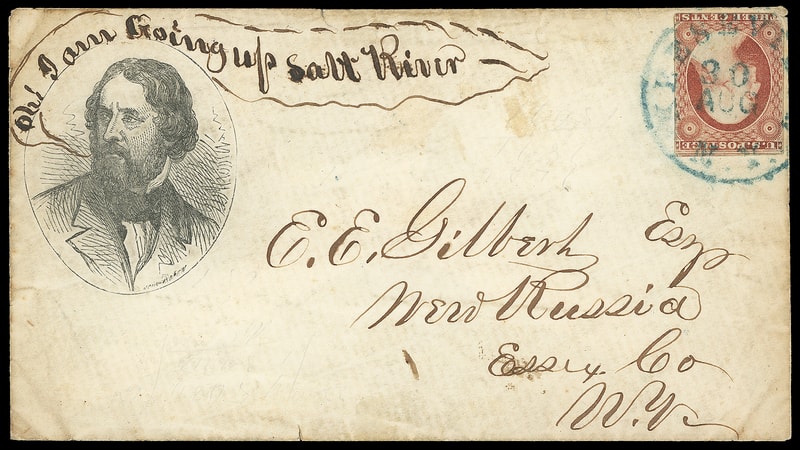 Oh! I am Going up Salt River
THREE CENTS
20
AUG
N.Y.
U.S. POSTAGE
E. E. Gilbert, Esq
New Russia
Essex Co
N.Y.